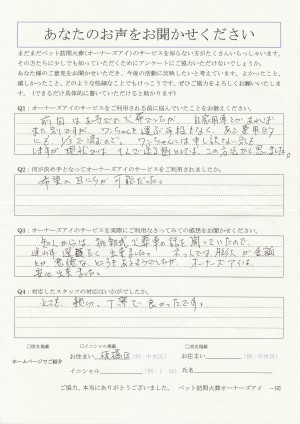 あなたのお声をお聞かせください
まだまだペット訪問火葬(オーナーズアイ)のサービスを知らない方がたくさんいらっしゃいます。
その方たちに少しでも知っていただくためにアンケートにご協力いただけないでしょうか。
あなた様のご意見をお聞かせいただき、今後の活動に反映したいと考えています。よかったこと、
嬉しかったこと、どのような些細なことでもけっこうです。ぜひご協力をよろしくお願いいたします。
(できるだけ具体的に書いていただけると助かります)
Q1：オーナーズアイのサービスをご利用される前に悩んでいたことをお教えください。
前回はお寺での火葬でしたが、自家用車とかあれば
また良いですが、ワンちゃんを運ぶ手段もなく、あと費用的
にも、1/3で済むので。ワンちゃんには申し訳ない気も
Q2：何が決め手となってオーナーズアイのサービスをご利用されましたか。
希望の日にちが可能だった。
Q3：オーナーズアイのサービスを実際にご利用なさってみての感想をお聞かせください。
知人からは訪問式火葬車の話を聞いていたので、
安心出来ました。
Q4：対応したスタッフの対応はいかがでしたか。
とても親切、丁寧で良かったです。
□匿名掲載 □イニシャル掲載 □実名掲載
お住まい 板橋区 (例：中央区) お住まい (例：中央区)
ホームページでご紹介
イニシャル (例：S・H) 氏名
ご協力、本当にありがとうございました。 ペット訪問火葬オーナーズアイ 一同